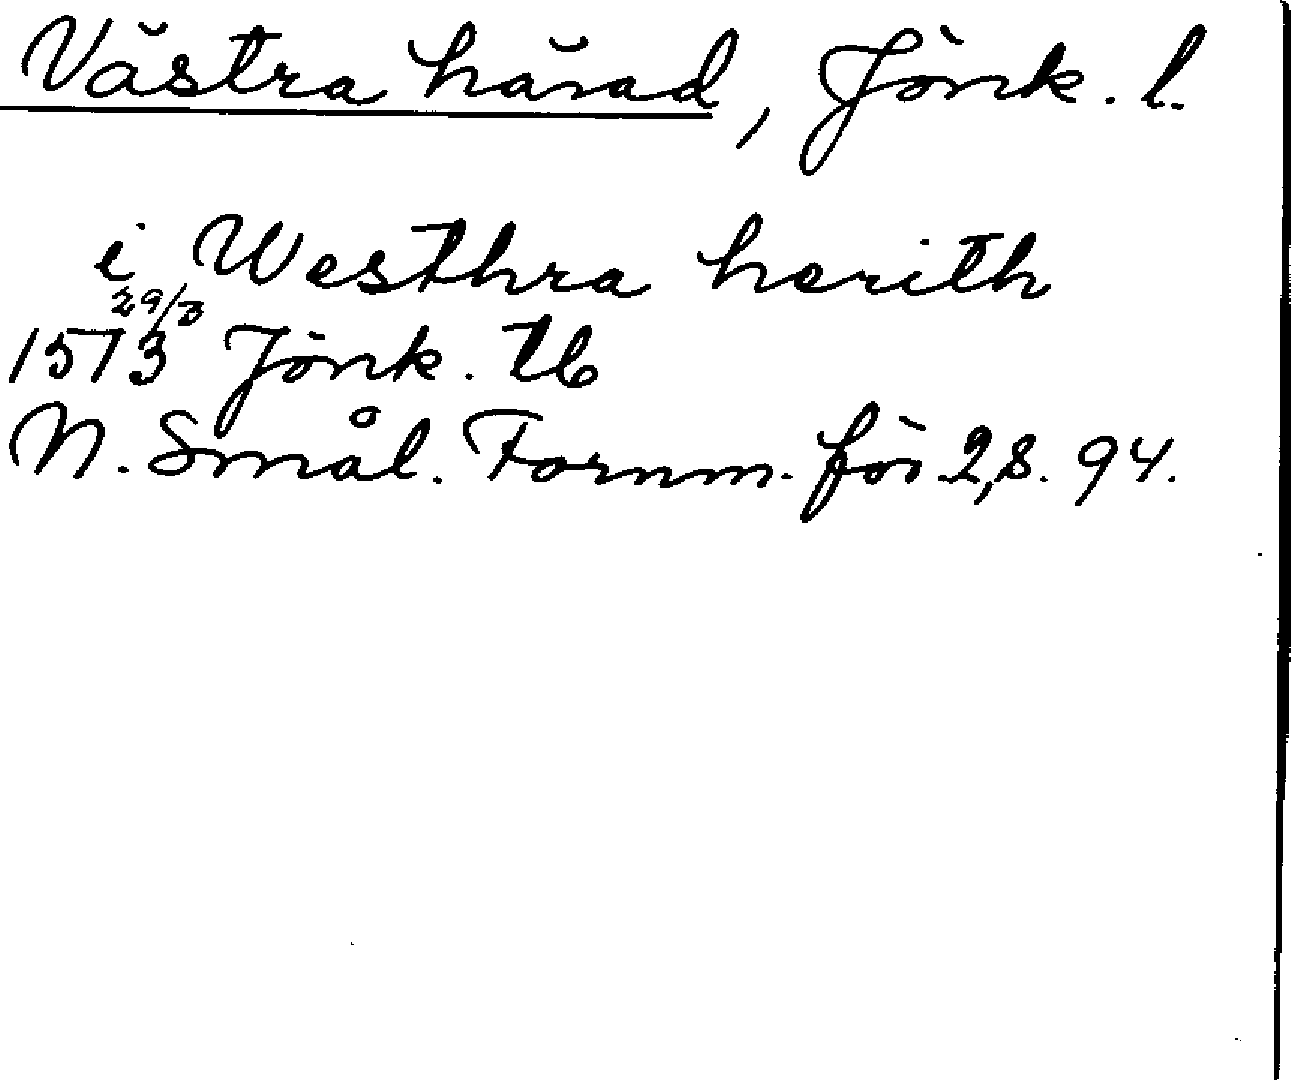 Västra härad, Jönk. l.
i Westhra herith
29/3
1573 Jönk. tb
N. Smål. Fornm. för. 2, s. 94.